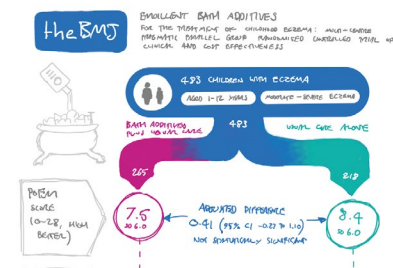 the BMJ
EMOLLIENT BATH ADDITIVES
FOR THE TREATMENT OF CHILDHOOD ECZEMA: MULTI-CENTRE
PRAGMATIC PARALLEL GROUP RANDOMIZED CONTROLLED TRIAL OF
CLINICAL AND COST EFFECTIVENESS
483 CHILDREN WITH ECZEMA
AGED 1-12 YEARS
MODERATE-SEVERE ECZEMA
BATH ADDITIVES
PLUS USUAL CARE
483
USUAL CARE ALONE
265
218
POEM
SCORE
(0-28, HIGH
7.5
SD 6.0
ADJUSTED DIFFERENCE
0.41 (95% CI -0.27 TO 1.10)
NOT STATISTICALLY SIGNIFICANT
8.4
SD 6.0